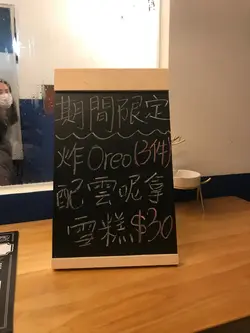 期間限定
炸Oreo(3件)
配雲呢拿
雪糕$30